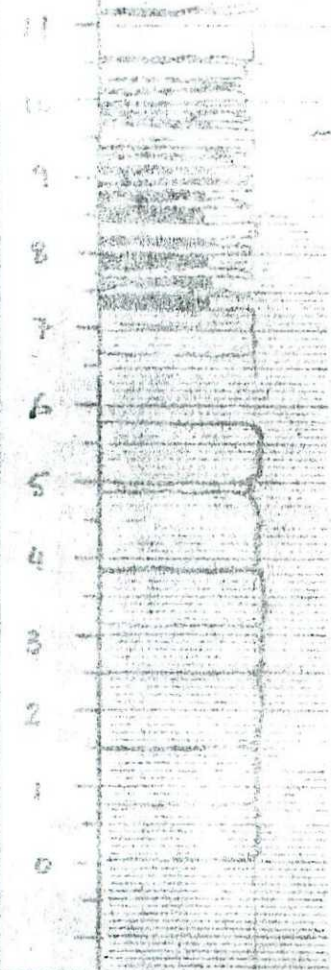 11
10
9
8
7
6
5
4
3
2
1
0